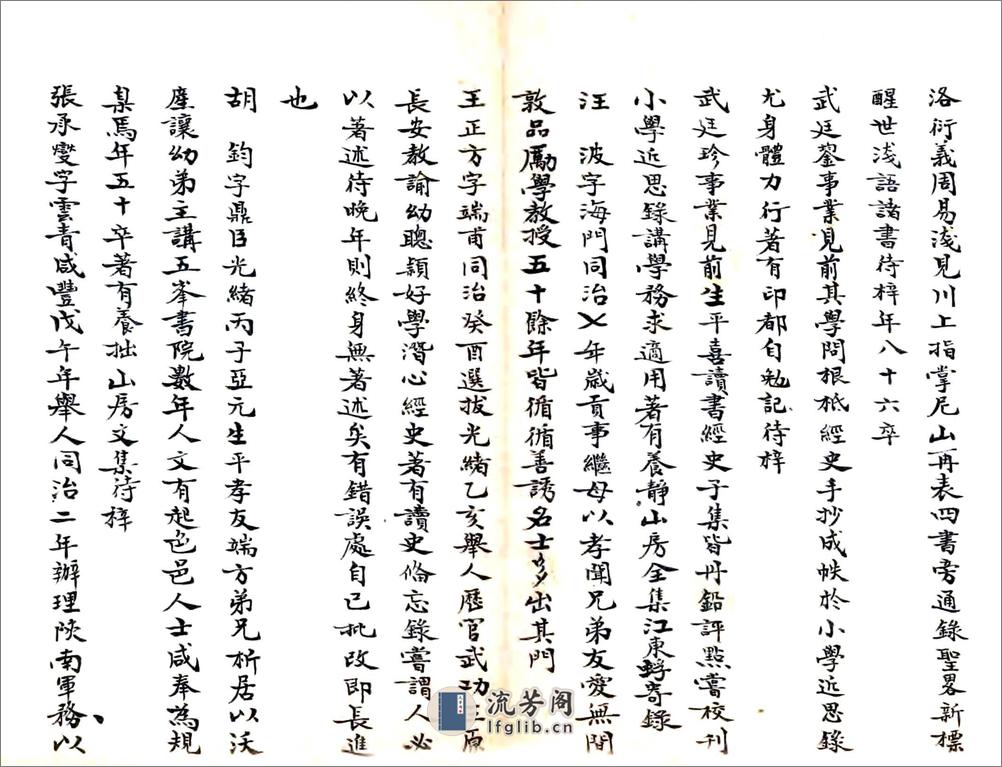 洛衍義周易淺見川上指掌尼山再表四書旁通錄聖畧新標
醒世淺語諸書待梓年八十六卒
武廷鋆事業見前其學問根柢經史手抄成帙於小學近思錄
尤身體力行著有印都自勉記待梓
武廷珍事業見前生平喜讀書經史子集皆丹鉛評點嘗校刊
小學近思錄講學務求適用著有養靜山房全集江東蜉寄錄
汪波字海門同治 年歲貢事繼母以孝聞兄弟友愛無間
敦品勵學教授五十餘年皆循循善誘名士多出其門
王正方字端甫同治癸酉選拔光緒乙亥舉人歷官武功三原
長安教諭幼聰穎好學潛心經史著有讀史偹忘錄嘗謂人必
以著述待晚年則終身無著述矣有錯誤處自己批改即長進
也
胡鈞字鼎臣光緒丙子亞元生平孝友端方弟兄析居以沃
產讓幼弟主講五峯書院數年人文有起色邑人士咸奉為規
臬焉年五十卒著有養拙山房文集待梓
張承燮字雲青咸豐戊午年舉人同治二年辦理陝南軍務以
流芳阁
lfglib.cn